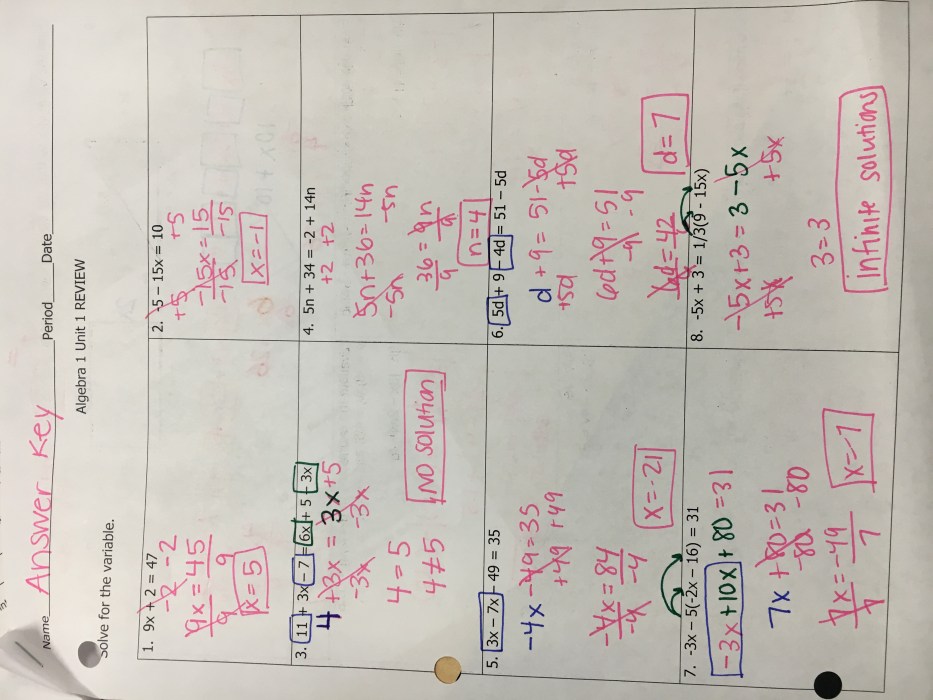 Name Answer Key Period Date
Algebra 1 Unit 1 REVIEW
Solve for the variable.
1. 9x + 2 = 47
-2 -2
9x = 45
9 9
x = 5
2. -5 – 15x = 10
+5 +5
-15x = 15
-15 -15
x = -1
3. 11 + 3x – 7 = 6x + 5 – 3x
4 + 3x = 3x + 5
-3x -3x
4 = 5
4 ≠ 5
NO Solution
4. 5n + 34 = -2 + 14n
+2 +2
5n + 36 = 14n
-5n -5n
36 = 9n
9 9
n = 4
5. 3x – 7x – 49 = 35
-4x - 49 = 35
+49 +49
-4x = 84
-4 -4
x = -21
6. 5d + 9 – 4d = 51 – 5d
d + 9 = 51 - 5d
+5d +5d
6d + 9 = 51
-9 -9
6d = 42
6 6
d = 7
7. -3x – 5(-2x – 16) = 31
-3x + 10x + 80 = 31
7x + 80 = 31
-80 -80
7x = -49
7 7
x = -7
8. -5x + 3 = 1/3(9 - 15x)
-5x + 3 = 3 - 5x
+5x +5x
3 = 3
infinite solutions